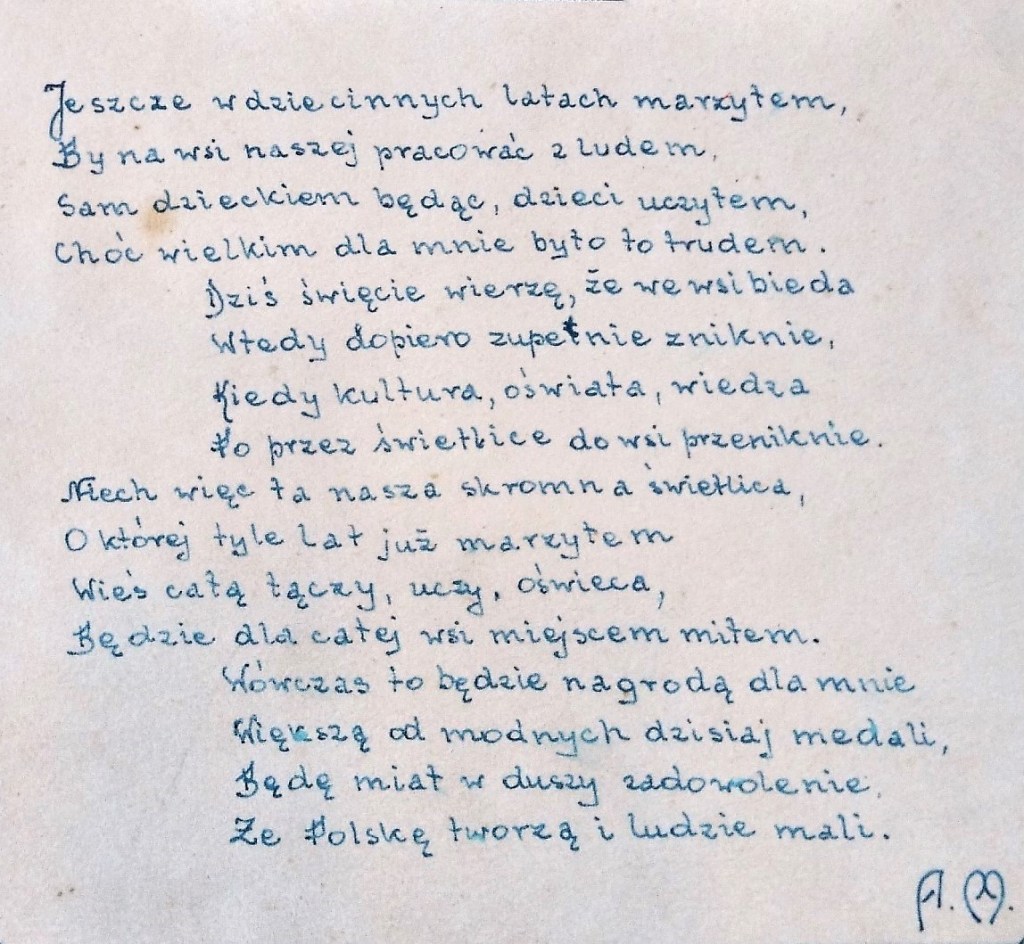 Jeszcze w dziecinnych latach marzyłem,
By na wsi naszej pracować z ludem,
Sam dzieckiem będąc, dzieci uczyłem,
Choć wielkim dla mnie było to trudem.
Dziś święcie wierzę, że we wsi bieda
Wtedy dopiero zupełnie zniknie,
Kiedy kultura, oświata, wiedza
Po przez świetlice do wsi przeniknie.
Niech więc ta nasza skromna świetlica,
O której tyle lat już marzyłem
Wieś całą łączy, uczy, oświeca,
Będzie dla całej wsi miejscem miłem.
Wówczas to będzie nagrodą dla mnie
Większą od modnych dzisiaj medali,
Będę miał w duszy zadowolenie,
Że Polskę tworzą i ludzie mali.
A. M.